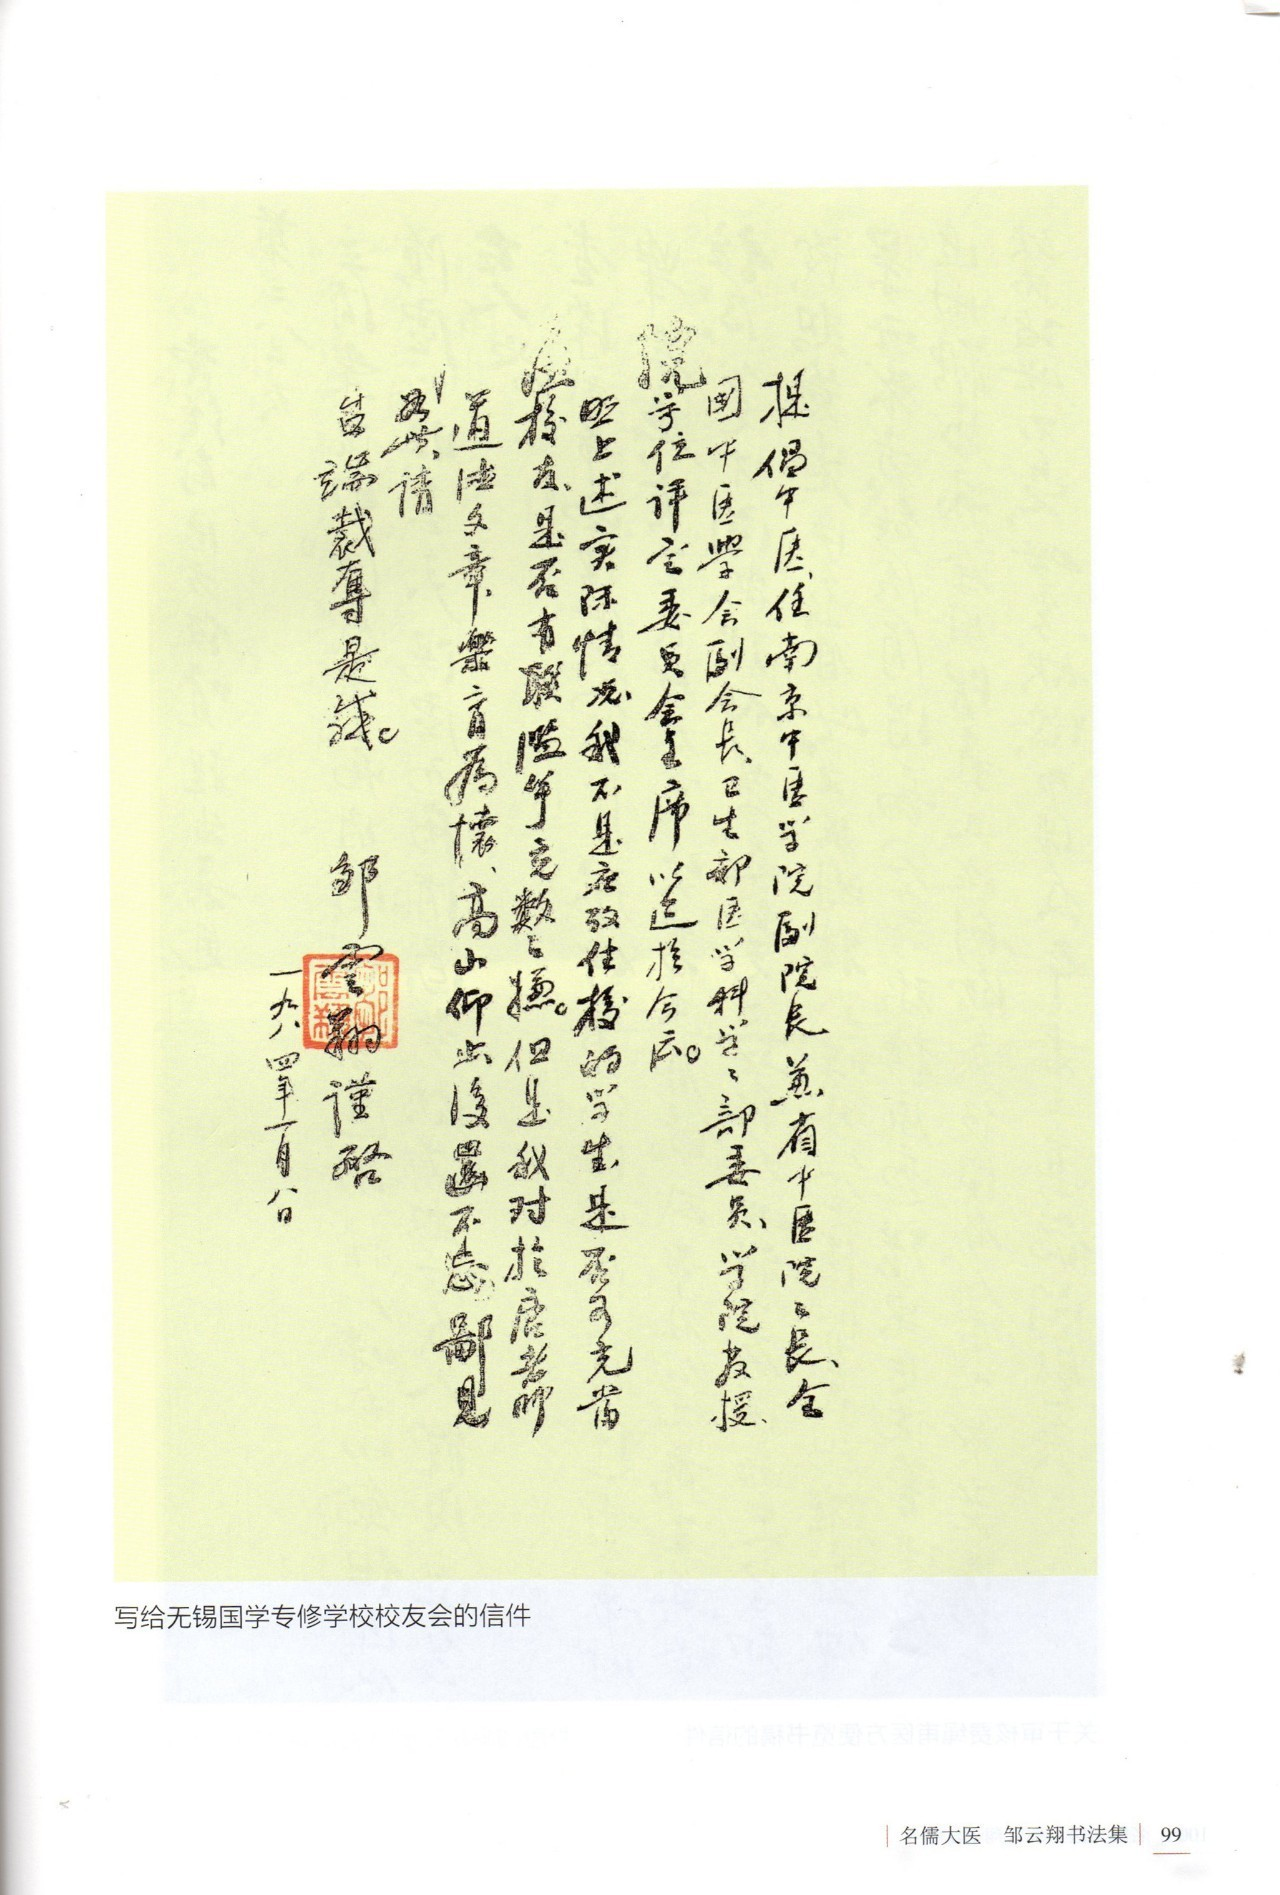 提倡中医、任南京中医学院副院长兼省中医院〻长、全
国中医學会副会长、卫生部医学科学〻部委员、学院教授、
院学位评定委员会主席以迄於今 。
照上述实际情况我不是在致住校的学生是否可充當
校友是否有联濫竽充數〻嫌。但是我对於唐老师
道德文章、樂育為懷、高山仰止後還不忘鄙見
如此、请
台端裁奪是荷。
邹雲翔謹啓
一九八四年一月八日
写给无锡国学专修学校校友会的信件
名儒大医 邹云翔书法集 99